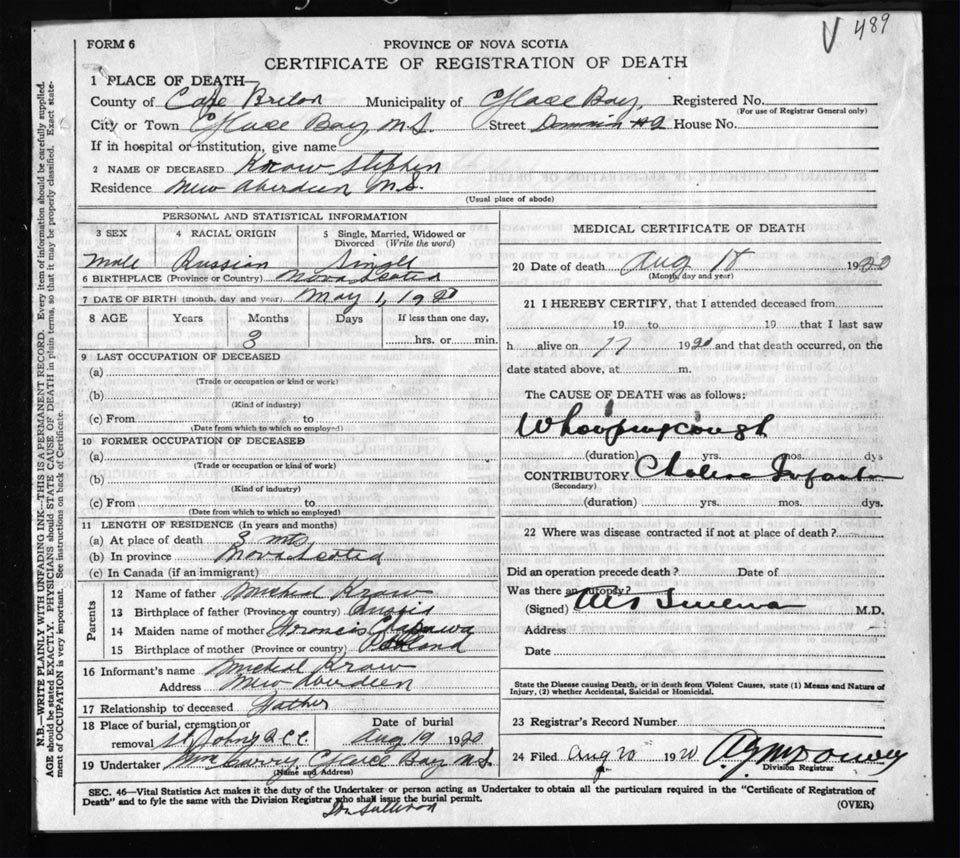 V 489
FORM 6
PROVINCE OF NOVA SCOTIA
CERTIFICATE OF REGISTRATION OF DEATH
1 PLACE OF DEATH—
County of Cape Breton Municipality of Glace Bay, Registered No.
(For use of Registrar General only)
City or Town Glace Bay N.S. Street Dominion #2 House No.
If in hospital or institution, give name
2 NAME OF DECEASED Kraw Stephen
Residence New Aberdeen N.S.
(Usual place of abode)
PERSONAL AND STATISTICAL INFORMATION
3 SEX 4 RACIAL ORIGIN 5 Single, Married, Widowed or Divorced (Write the word)
Male Russian Single
6 BIRTHPLACE (Province or Country) Nova Scotia
7 DATE OF BIRTH (month, day and year) May 1, 1920
8 AGE Years Months Days If less than one day,
3 hrs. or min.
9 LAST OCCUPATION OF DECEASED
(a)
(Trade or occupation or kind or work)
(b)
(Kind of industry)
(c) From to
(Date from which to which so employed)
10 FORMER OCCUPATION OF DECEASED
(a)
(Trade or occupation or kind of work)
(b)
(Kind of industry)
(c) From to
(Date from which to which so employed)
11 LENGTH OF RESIDENCE (In years and months)
(a) At place of death 3 mts
(b) In province Nova Scotia
(c) In Canada (if an immigrant)
Parents
12 Name of father Micheal Kraw
13 Birthplace of father (Province or country)
14 Maiden name of mother
15 Birthplace of mother (Province or country)
16 Informant's name Micheal Kraw
Address New Aberdeen
17 Relationship to deceased father
18 Place of burial, cremation or removal St Johns Date of burial Aug 19 1920
19 Undertaker Glace Bay N.S.
(Name and Address)
MEDICAL CERTIFICATE OF DEATH
20 Date of death Aug 18 1920
(Month, day and year)
21 I HEREBY CERTIFY, that I attended deceased from
19 to 19 that I last saw
h alive on 17 1920 and that death occurred, on the
date stated above, at m.
The CAUSE OF DEATH was as follows:
Whooping cough
(duration) yrs. mos. dys
CONTRIBUTORY Cholera Infantum
(Secondary)
(duration) yrs. mos. dys.
22 Where was disease contracted if not at place of death?
Did an operation precede death? Date of
Was there an autopsy?
(Signed) M.D.
Address
Date
State the Disease causing Death, or in death from Violent Causes, state (1) Means and Nature of
Injury, (2) whether Accidental, Suicidal or Homicidal.
23 Registrar's Record Number
24 Filed Aug 20 1920
Division Registrar
SEC. 46—Vital Statistics Act makes it the duty of the Undertaker or person acting as Undertaker to obtain all the particulars required in the "Certificate of Registration of
Death" and to fyle the same with the Division Registrar who shall issue the burial permit.
(OVER)
Sullivan
N.B.—WRITE PLAINLY WITH UNFADING INK—THIS IS A PERMANENT RECORD. Every item of information should be carefully supplied.
AGE should be stated EXACTLY. PHYSICIANS should STATE CAUSE OF DEATH in plain terms, so that it may be properly classified. Exact state-
ment of OCCUPATION is very important. See instructions on back of Certificate.